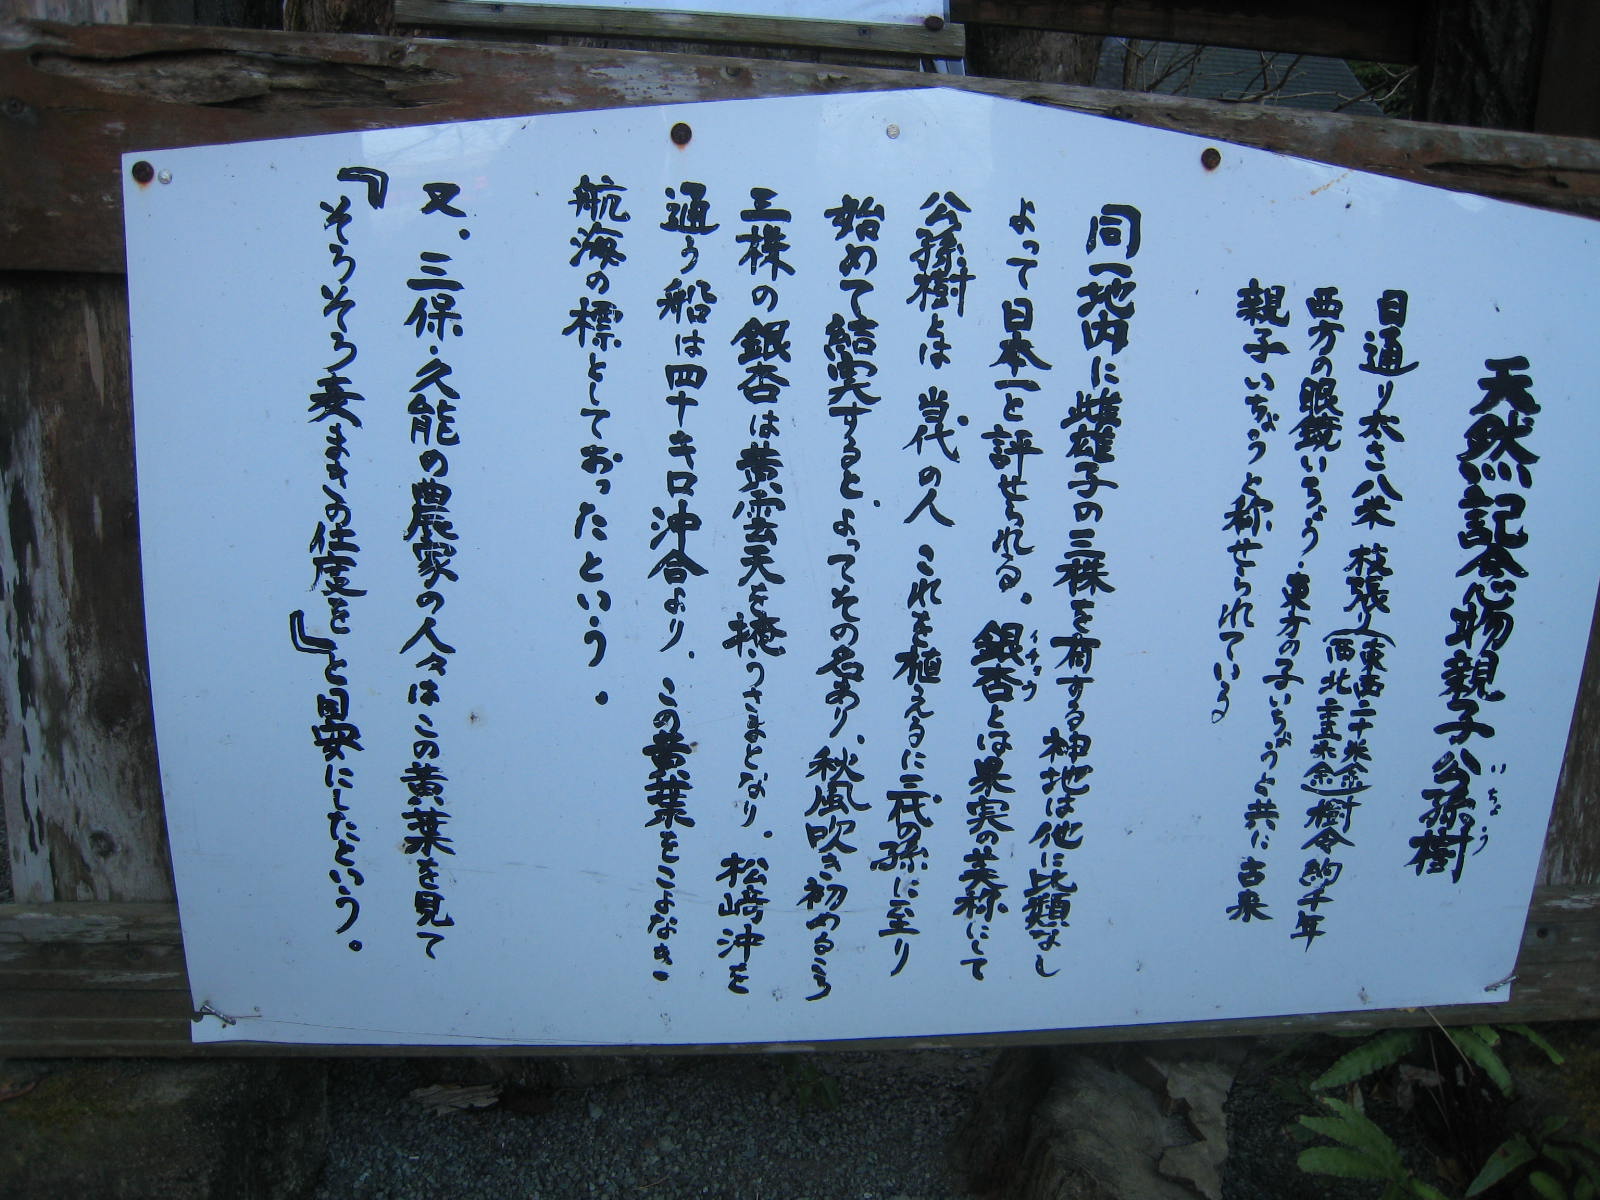 天然記念物親子公孫樹
いちょう
目通り太さ八米 枝張り(東西二十米余
西北二十五米余)樹令約千年
西方の眼鏡いちょう・東方の子いちょうと共に古来
親子いちょうと称せられている
同一地内に雌雄子の三株を有する神地は他に比類なし
よって日本一と評せられる。銀杏とは果実の美称にして
イチョウ
公孫樹とは 当代の人 これを植えるに三代の孫に至り
始めて結実すると、よってその名あり、秋風吹き初めるころ
三株の銀杏は黄雲天を掩うさまとなり。松崎沖を
通う船は四十キロ沖合より、この黄葉をこよなき
航海の標としておったという。
又。三保・久能の農家の人々はこの黄葉を見て
『そろそろ麦まきの仕度を』と目安にしたという。